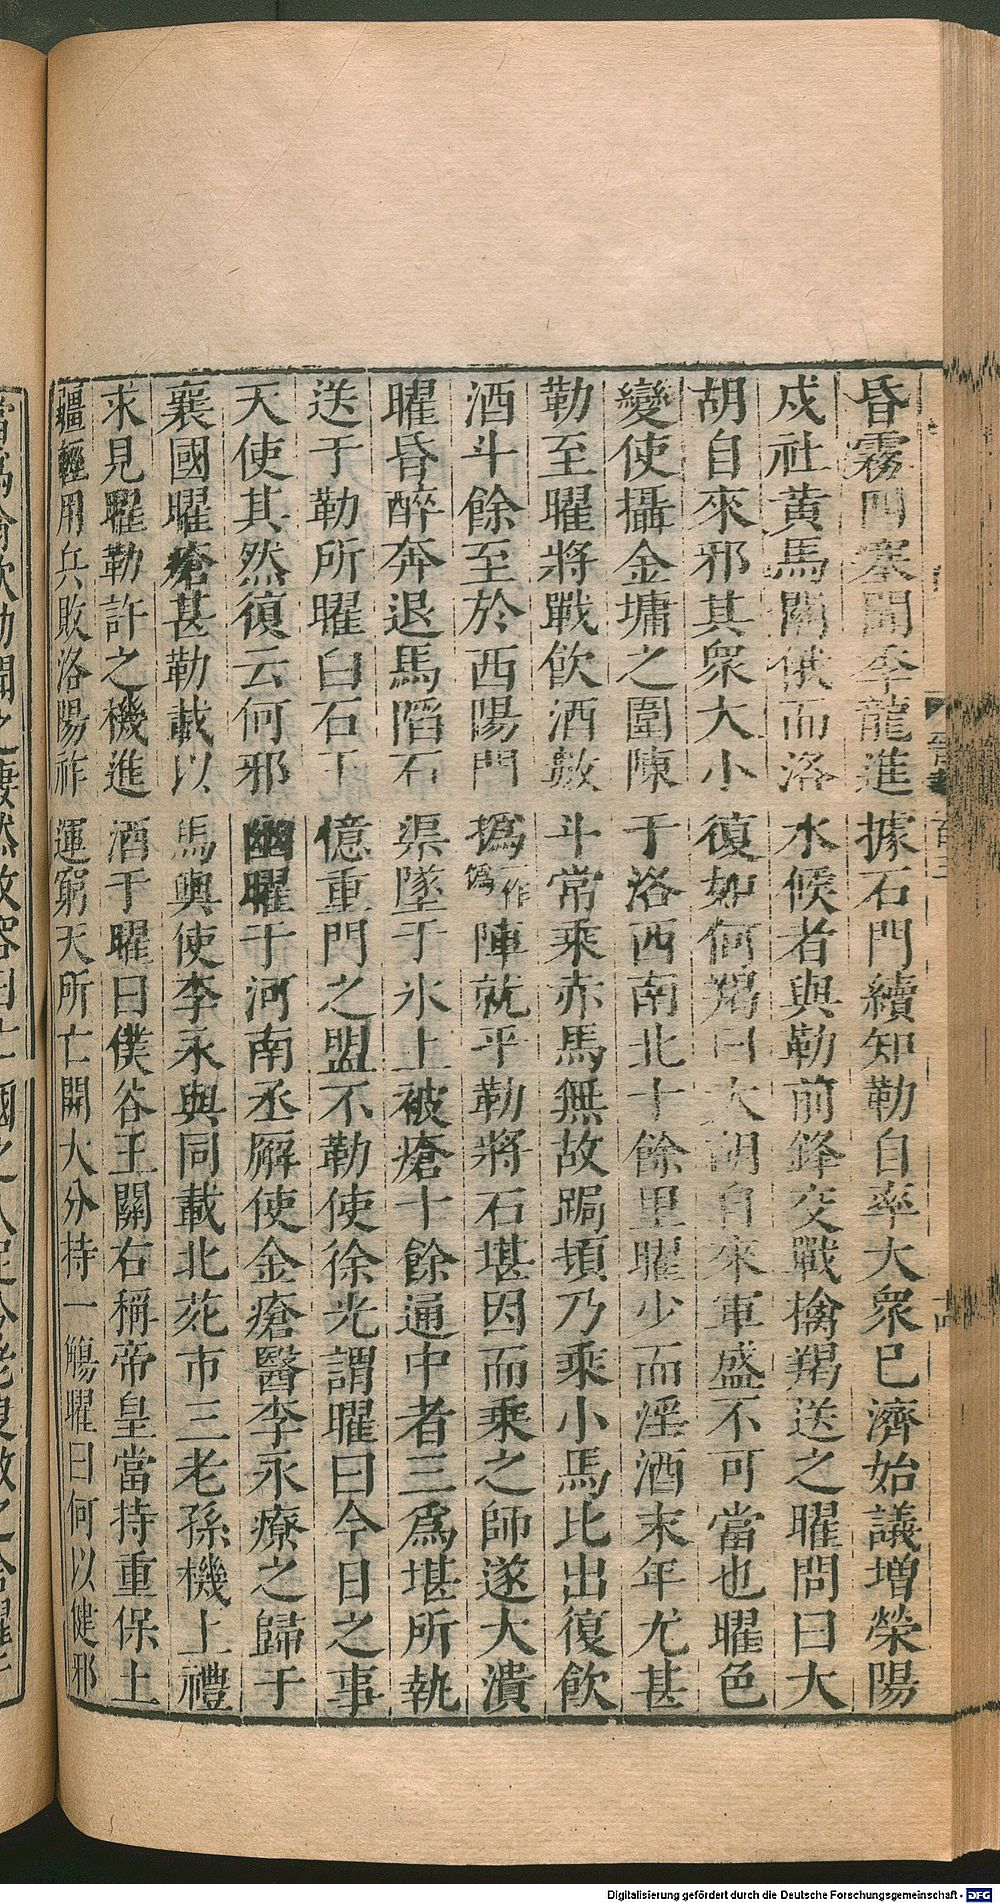 昏霧四塞聞季龍進據石門續知勒自率大衆已濟始議增榮陽
戍杜黃馬關俄而洛水候者與勒前鋒交戰擒羯送之曜問曰大
胡自來邪其衆大小復如何羯曰大胡自來軍盛不可當也曜色
變使攝金墉之圍陳于洛西南北十餘里曜少而淫酒末年尤甚
勒至曜將戰飲酒數斗常乘赤馬無故跼頓乃乘小馬比出復飲
酒斗餘至於西陽門撝作僞陣就平勒將石堪因而乘之師遂大潰
曜昏醉奔退馬陷石渠墜于氷上被瘡十餘通中者三爲堪所執
送于勒所曜曰石王憶重門之盟不勒使徐光謂曜曰今日之事
天使其然復云何邪幽曜于河南丞廨使金瘡醫李永療之歸于
襄國曜瘡甚勒載以馬輿使李永與同載北苑市三老孫機上禮
求見曜勒許之機進酒于曜曰僕谷王關右稱帝皇當持重保土
疆輕用兵敗洛陽祚運窮天所亡開大分持一觴曜曰何以健邪
Digitalisierung gefördert durch die Deutsche Forschungsgemeinschaft - DFG